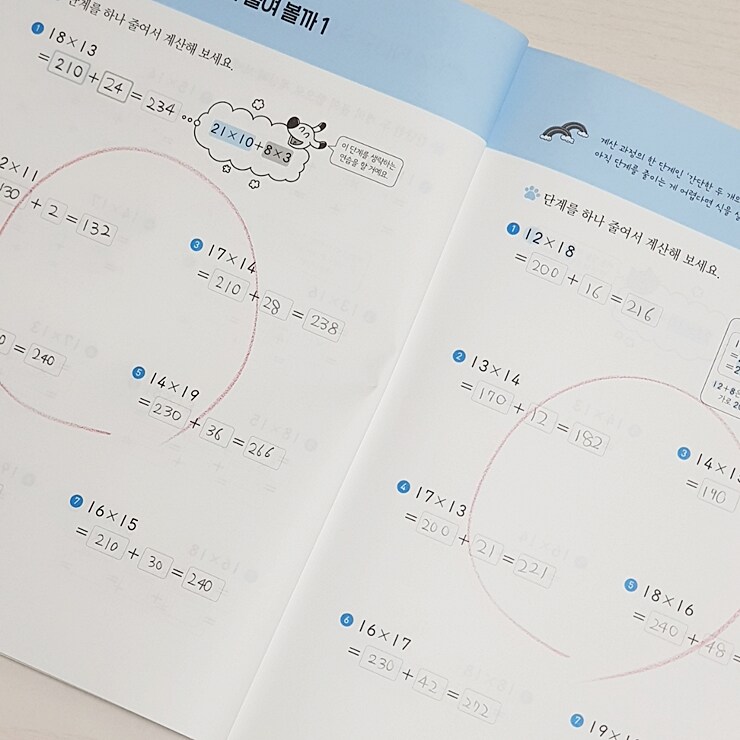 줄여 볼까 1
단계를 하나 줄여서 계산해 보세요.
1 18×13
= 210 + 24 = 234
21×10+8×3
이 단계를 생략하는
연습을 할 거예요.
2×11
130 + 2 = 132
3 17×14
= 210 + 28 = 238
= 240
5 14×19
= 230 + 36 = 266
7 16×15
= 210 + 30 = 240
계산 과정의 한 단계인 '간단한 두 개의
아직 단계를 줄이는 게 어렵다면 식을
단계를 하나 줄여서 계산해 보세요.
1 12×18
= 200 + 16 = 216
2 13×14
= 170 + 12 = 182
12+8은
가로 20
3 14×1
= 190
4 17×13
= 200 + 21 = 221
5 18×16
= 240 + 48 =
6 16×17
= 230 + 42 = 272
7 19×1